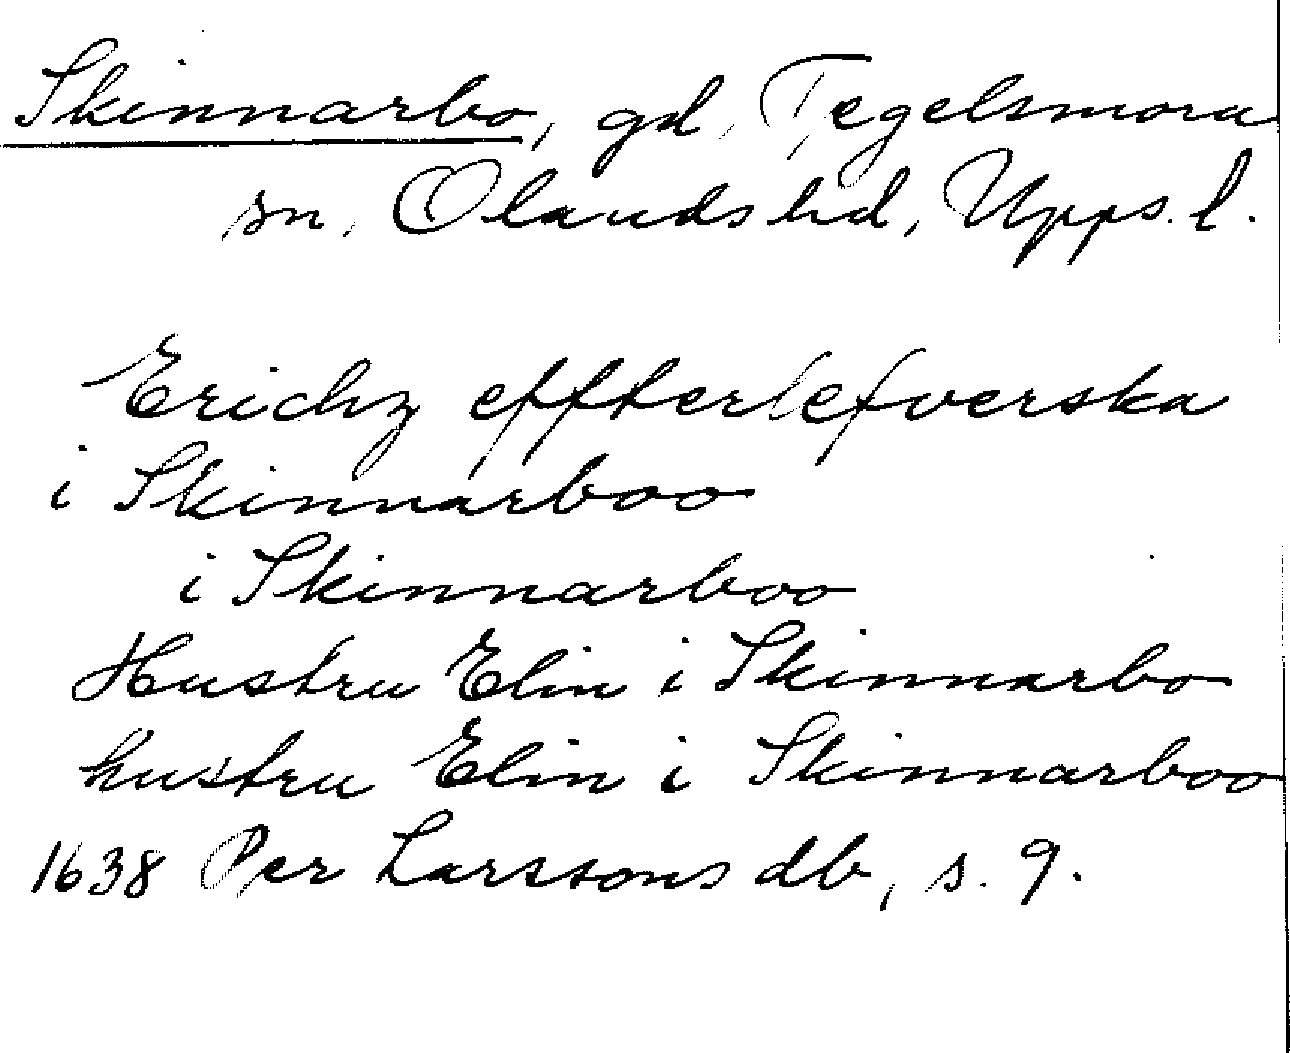 Skinnarbo, gd, Tegelsmora
sn, Olandshd, Upps. l.
Erichz effterlefverska
i Skinnarboo
i Skinnarboo
Hustru Elin i Skinnarbo
hustru Elin i Skinnarboo
1638 Per Larssons db, s. 9.